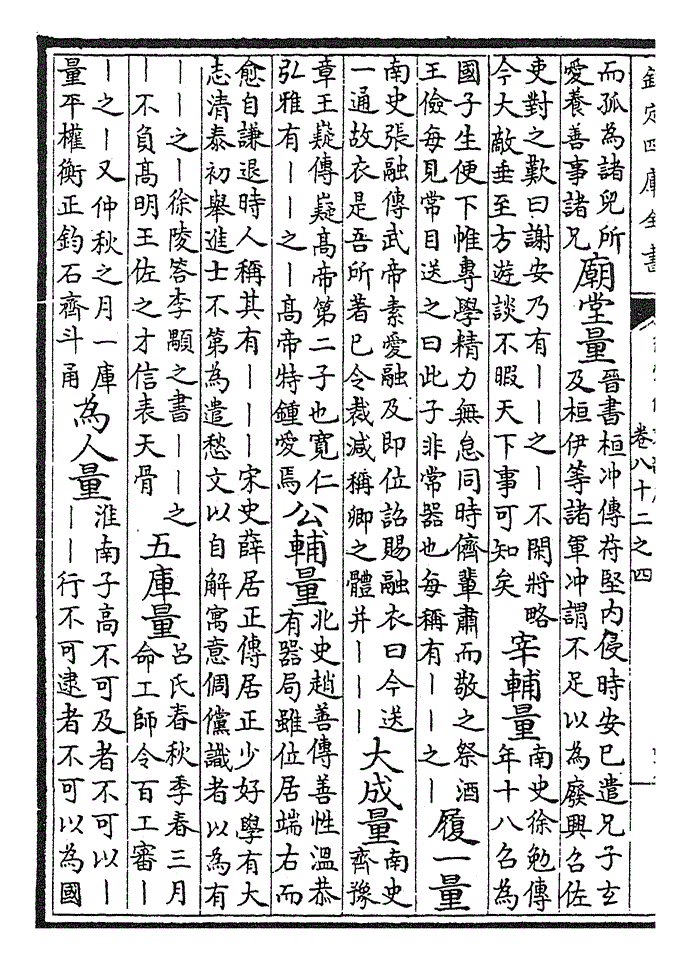 欽定四庫全書
卷八十二之四
而孤為諸兒所
愛養善事諸兄
廟堂量
晉書桓冲傳苻堅內侵時安已遣兄子玄
及桓伊等諸軍冲謂不足以為廢興召佐
吏對之歎曰謝安乃有丨丨之丨不閑將略
今大敵垂至方遊談不暇天下事可知矣
宰輔量
南史徐勉傳
年十八召為
國子生便下帷專學精力無怠同時儕輩肅而敬之祭酒
王儉每見常目送之曰此子非常器也每稱有丨丨之丨
履一量
南史張融傳武帝素愛融及即位詔賜融衣曰今送
一通故衣是吾所著已令裁減稱卿之體并丨丨丨
大成量
南史
齊豫
章王嶷傳嶷高帝第二子也寬仁
弘雅有丨丨之丨高帝特鍾愛焉
公輔量
北史趙善傳善性溫恭
有器局雖位居端右而
愈自謙退時人稱其有丨丨丨宋史薛居正傳居正少好學有大
志清泰初舉進士不第為遣愁文以自解寓意倜儻識者以為有
丨丨之丨徐陵答李顒之書丨丨之
丨不負高明王佐之才信表天骨
五庫量
呂氏春秋季春三月
命工師令百工審丨
丨之丨又仲秋之月一庫
量平權衡正鈞石齊斗甬
為人量
淮南子高不可及者不可以丨
丨丨行不可逮者不可以為國